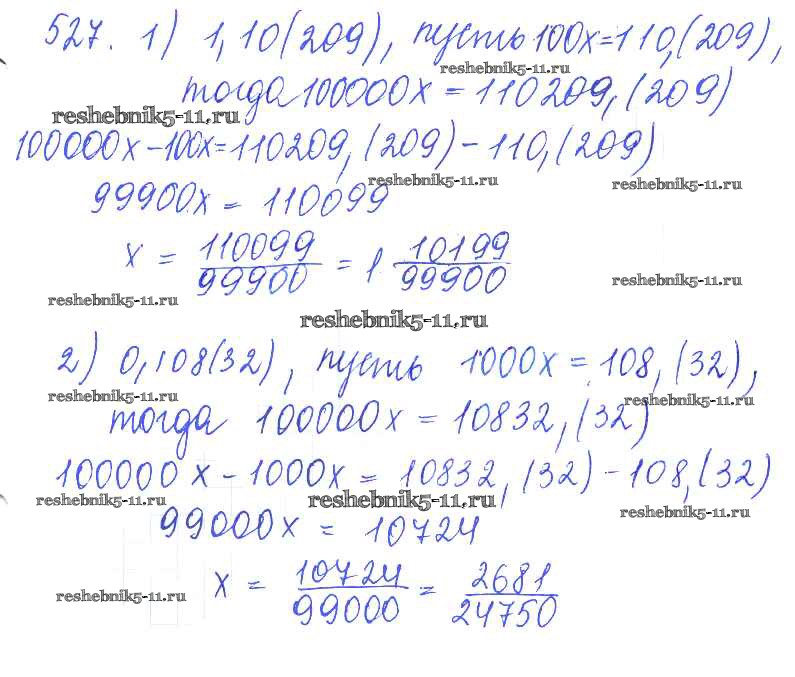 527. 1) 1,10(209), пусть 100x=110,(209),
reshebnik5-11.ru
тогда 100000x = 110209,(209)
reshebnik5-11.ru
100000x-100x=110209,(209)-110,(209)
reshebnik5-11.ru
reshebnik5-11.ru
99900x = 110099
x = 110099/99900 = 1 10199/99900
reshebnik5-11.ru
reshebnik5-11.ru
reshebnik5-11.ru
2) 0,108(32), пусть 1000x = 108,(32),
reshebnik5-11.ru
reshebnik5-11.ru
тогда 100000x = 10832,(32)
100000x-1000x = 10832,(32)-108,(32)
reshebnik5-11.ru
reshebnik5-11.ru
reshebnik5-11.ru
99000x = 10724
x = 10724/99000 = 2681/24750
reshebnik5-11.ru